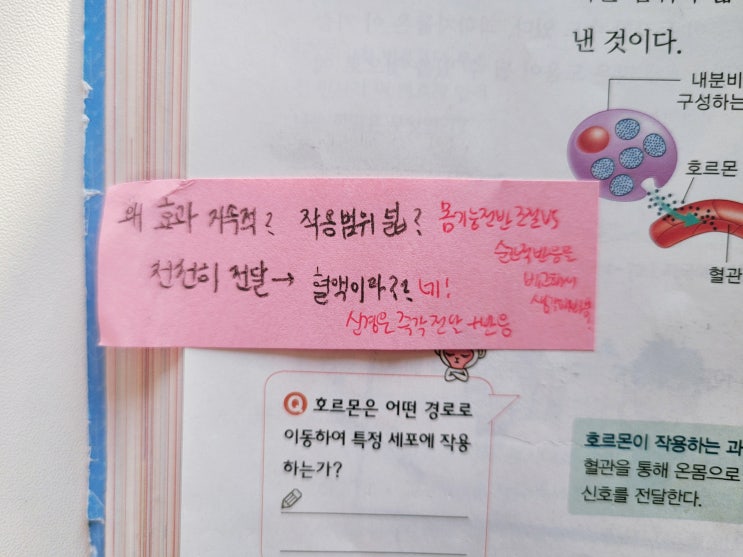 낸 것이다.
내분비
구성하는
호르몬
혈관
왜 효과 지속적? 작용범위 넓?
몸기능전반 조절 vs
순간적반응을
비교해서
생각해봐용!
천천히 전달→ 혈액이라?? 네!
신경은 즉각 전달 + 반응
Q 호르몬은 어떤 경로로
이동하여 특정 세포에 작용
하는가?
호르몬이 작용하는 과
혈관을 통해 온몸으로
신호를 전달한다.